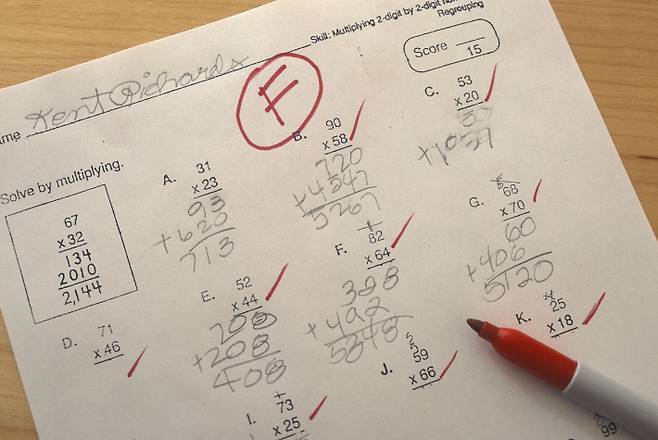 Skill: Multiplying 2-digit by 2-digit
Regrouping
Score
15
Kent Richards
F
Solve by multiplying.
67
x 32
134
2010
2,144
A. 31
x 23
93
+ 620
713
B. 90
x 58
720
+ 4547
5267
C. 53
x 20
D. 71
x 46
E. 52
x 44
208
+ 208
408
F. 82
x 64
328
+ 492
5248
G. 68
x 70
60
+ 406
5120
I. 73
x 25
J. 59
x 66
K. 25
x 18
99